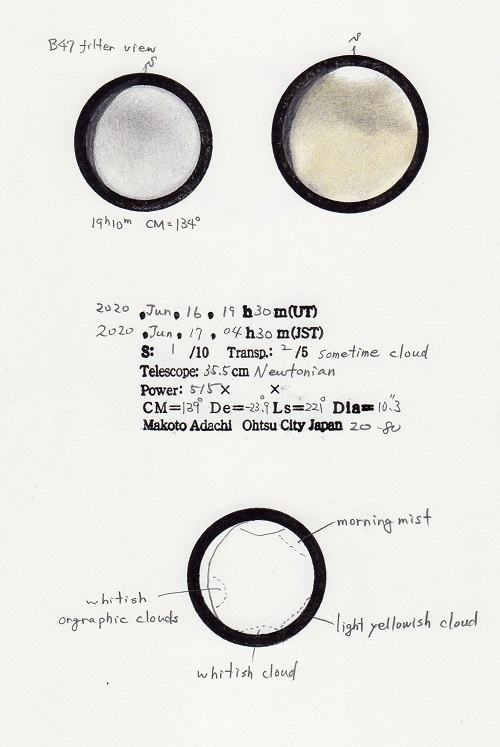 B47 filter view
N
N
19h10m CM=134°
2020 ,Jun, 16, 19 h 30 m(UT)
2020 ,Jun, 17, 04 h 30 m(JST)
S: 1 /10 Transp.: 2 /5 sometime cloud
Telescope: 35.5 cm Newtonian
Power: 515× ×
CM=139° De=-23.9° Ls=221° Dia=10.3"
Makoto Adachi Ohtsu City Japan 20-80
morning mist
whitish
orgraphic clouds
light yellowish cloud
whitish cloud